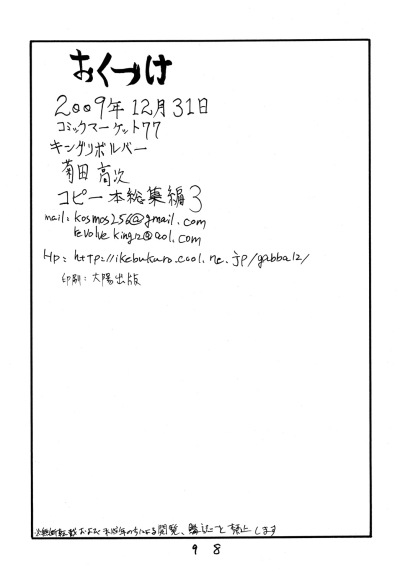 おくづけ
2009年12月31日
コミックマーケット77
キングリボルバー
菊田 高次
コピー本総集編3
mail: kosmos256@gmail.com
revolveking12@aol.com
Hp: http://ikebukuro.cool.ne.jp/gabba12/
印刷: 大陽出版
※無断転載および未成年の方による閲覧、購読を禁止します
98